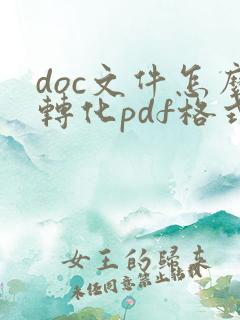 doc文件怎麼
轉化pdf格式
女王的歸來
未經同意禁止轉載